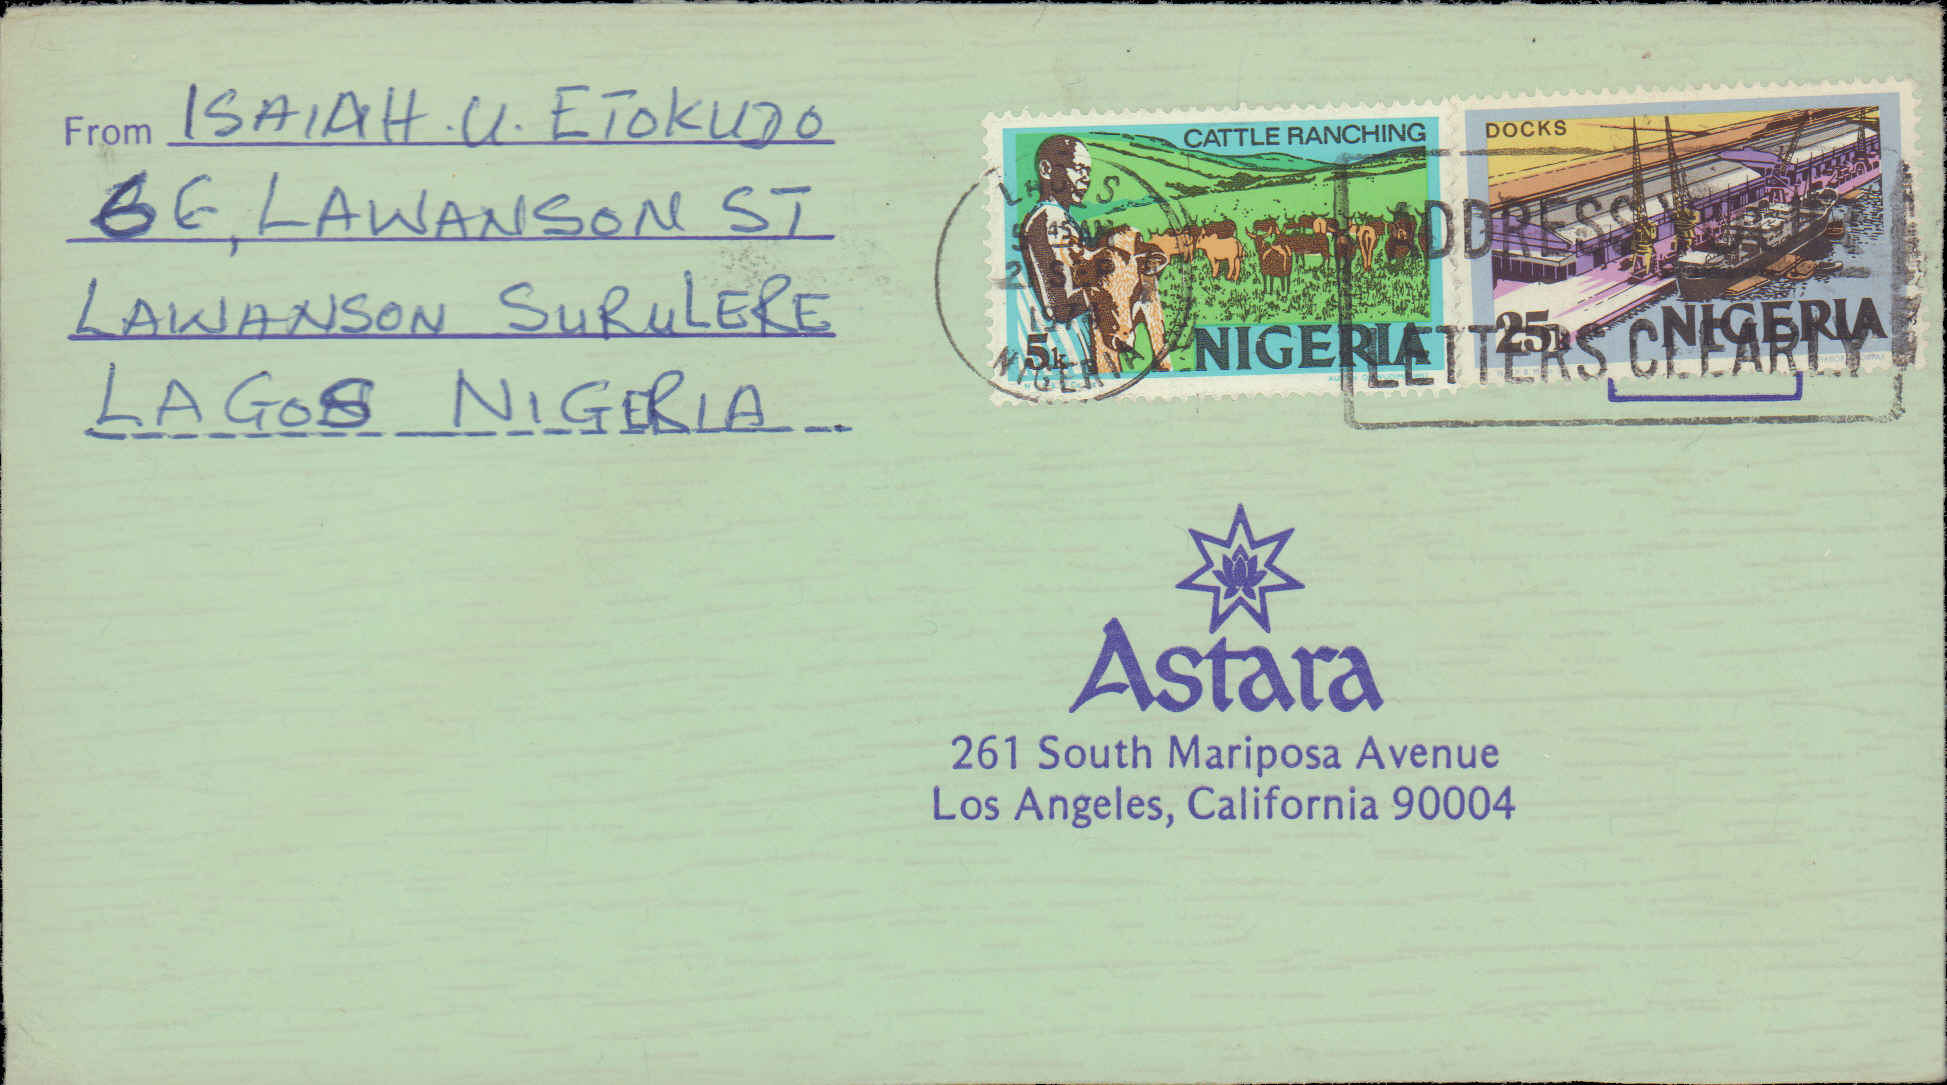 From ISAIAH.U. ETOKUDO
6E, LAWANSON ST
LAWANSON SURULERE
LAGOS NIGERIA
CATTLE RANCHING
5k NIGERIA
DOCKS
25k NIGERIA
LAGOS
NIGERIA
ADDRESS
LETTERS CLEARLY
Astara
261 South Mariposa Avenue
Los Angeles, California 90004